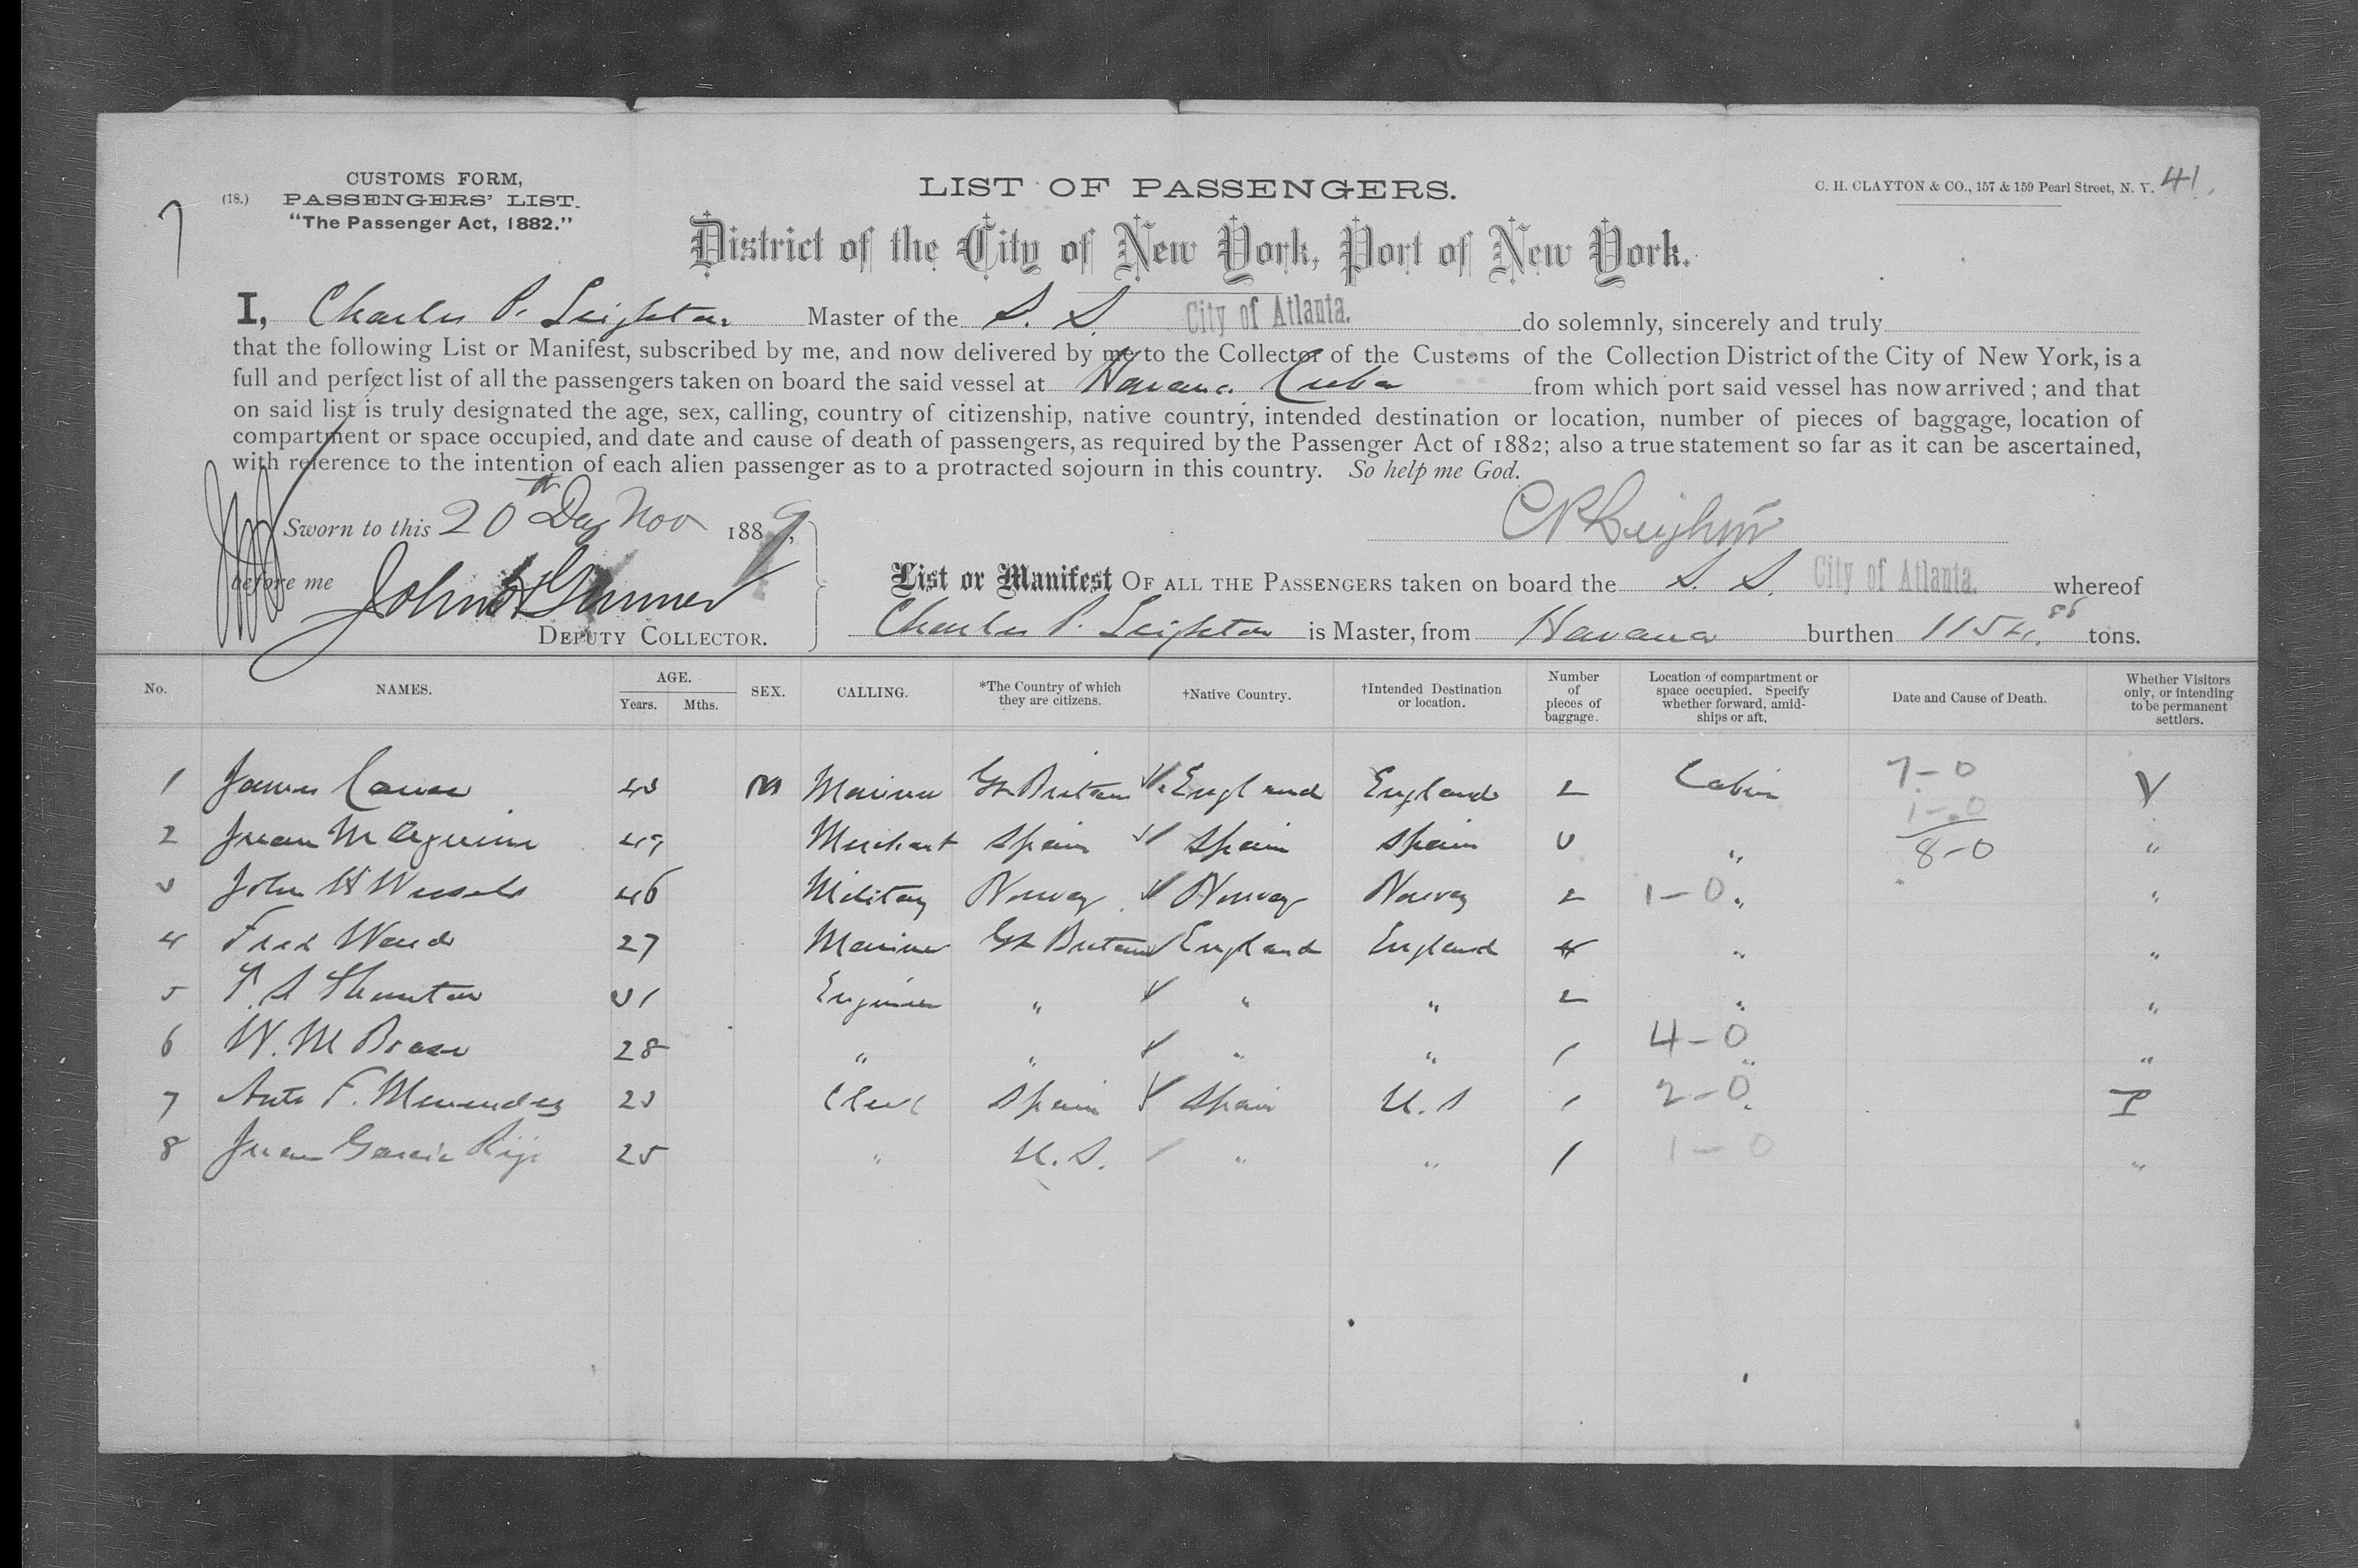 7
(18.)
CUSTOMS FORM,
PASSENGERS' LIST.
"The Passenger Act, 1882."
LIST OF PASSENGERS.
C. H. CLAYTON & CO., 157 & 159 Pearl Street, N. Y. 41.
District of the City of New York, Port of New York.
I, Charles P. Leighton Master of the S. S. City of Atlanta. do solemnly, sincerely and truly
that the following List or Manifest, subscribed by me, and now delivered by me to the Collector of the Customs of the Collection District of the City of New York, is a
full and perfect list of all the passengers taken on board the said vessel at Havana Cuba from which port said vessel has now arrived; and that
on said list is truly designated the age, sex, calling, country of citizenship, native country, intended destination or location, number of pieces of baggage, location of
compartment or space occupied, and date and cause of death of passengers, as required by the Passenger Act of 1882; also a true statement so far as it can be ascertained,
with reference to the intention of each alien passenger as to a protracted sojourn in this country. So help me God.
Sworn to this 20th Day Nov 1889,
CP Leighton
before me John
DEPUTY COLLECTOR.
List or Manifest OF ALL THE PASSENGERS taken on board the S. S. City of Atlanta. whereof
Charles P. Leighton is Master, from Havana burthen 1154.86 tons.
No. NAMES. AGE. Years. Mths. SEX. CALLING. *The Country of which they are citizens. †Native Country. †Intended Destination or location. Number of pieces of baggage. Location of compartment or space occupied. Specify whether forward, amidships or aft. Date and Cause of Death. Whether Visitors only, or intending to be permanent settlers.
1 James 43 M Mariner Gt Britain England England 2 Cabin 7-0 V
1-0
2 Juan M 49 Merchant Spain Spain Spain 3 " 8-0 "
3 John H Wessels 46 Military Norway Norway Norway 2 1-0 " "
4 Fred Ward 27 Mariner Gt Britain England England 4 " "
5 31 Engineer " " " 2 " "
6 W. M 28 " " " " 1 4-0 " "
7 Anto F. Menendez 23 Clerk Spain Spain U.S 1 2-0 " P
8 Juan Garcia 25 " U.S. " " 1 1-0 "